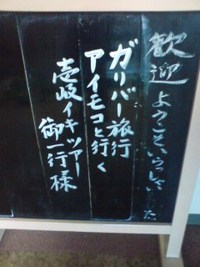 歓迎 ようこそいらっしゃいました
ガリバー旅行
アイモコと行く
壱岐イキツアー
御一行様